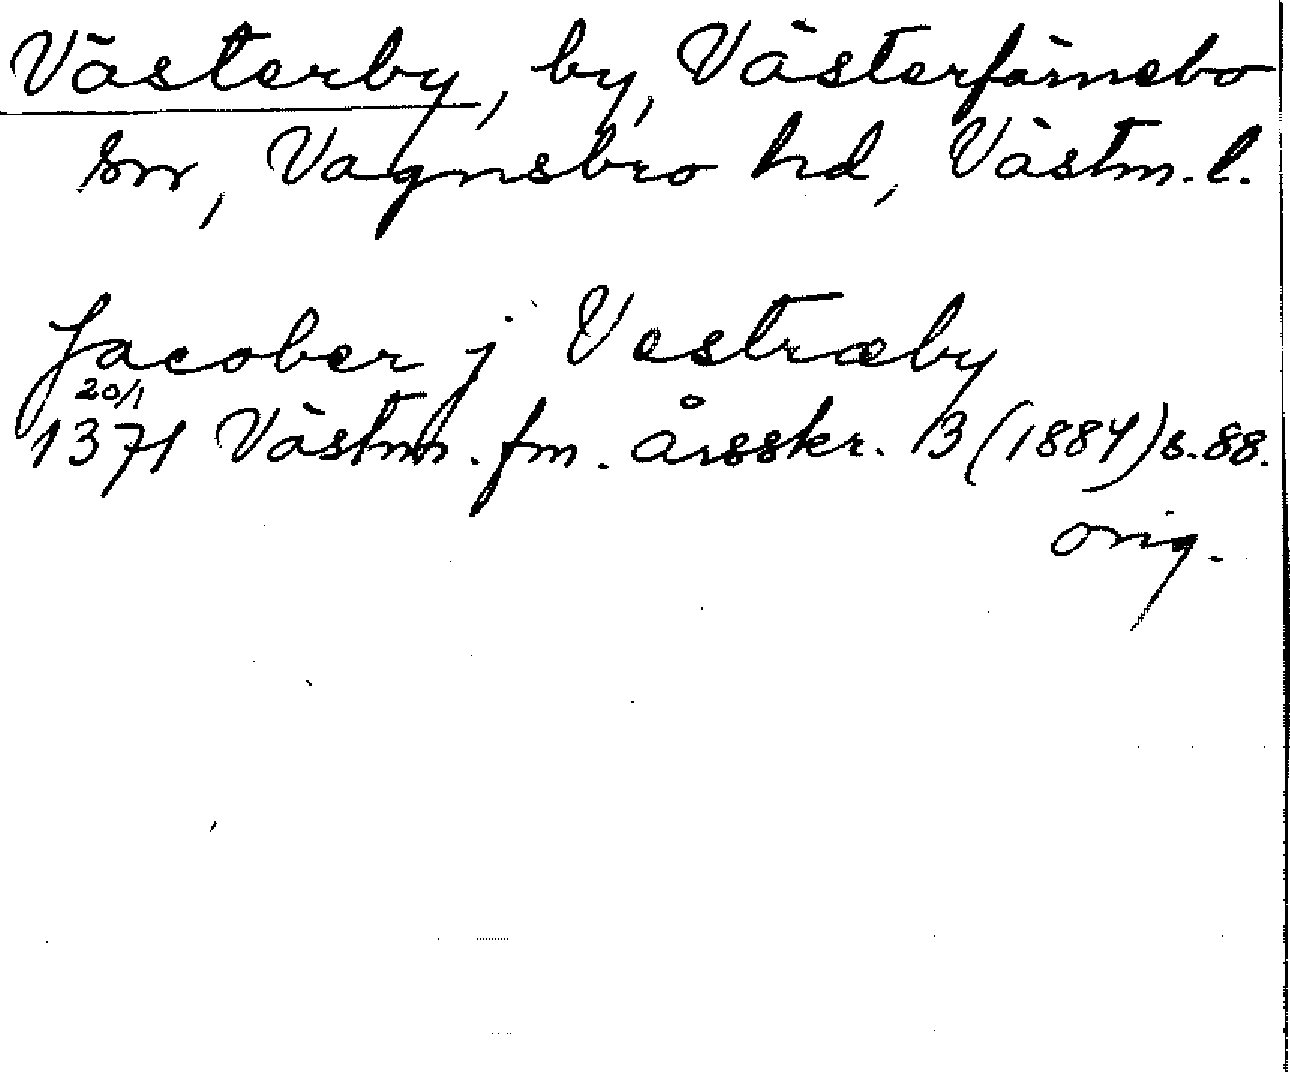 Västerby, by, Västerfärnebo
sn, Vagnsbro hd, Västm. l.
Jacober j Vestræby
20/1
1371 Västm. fm. årsskr. 3 (1884) s. 88.
orig.